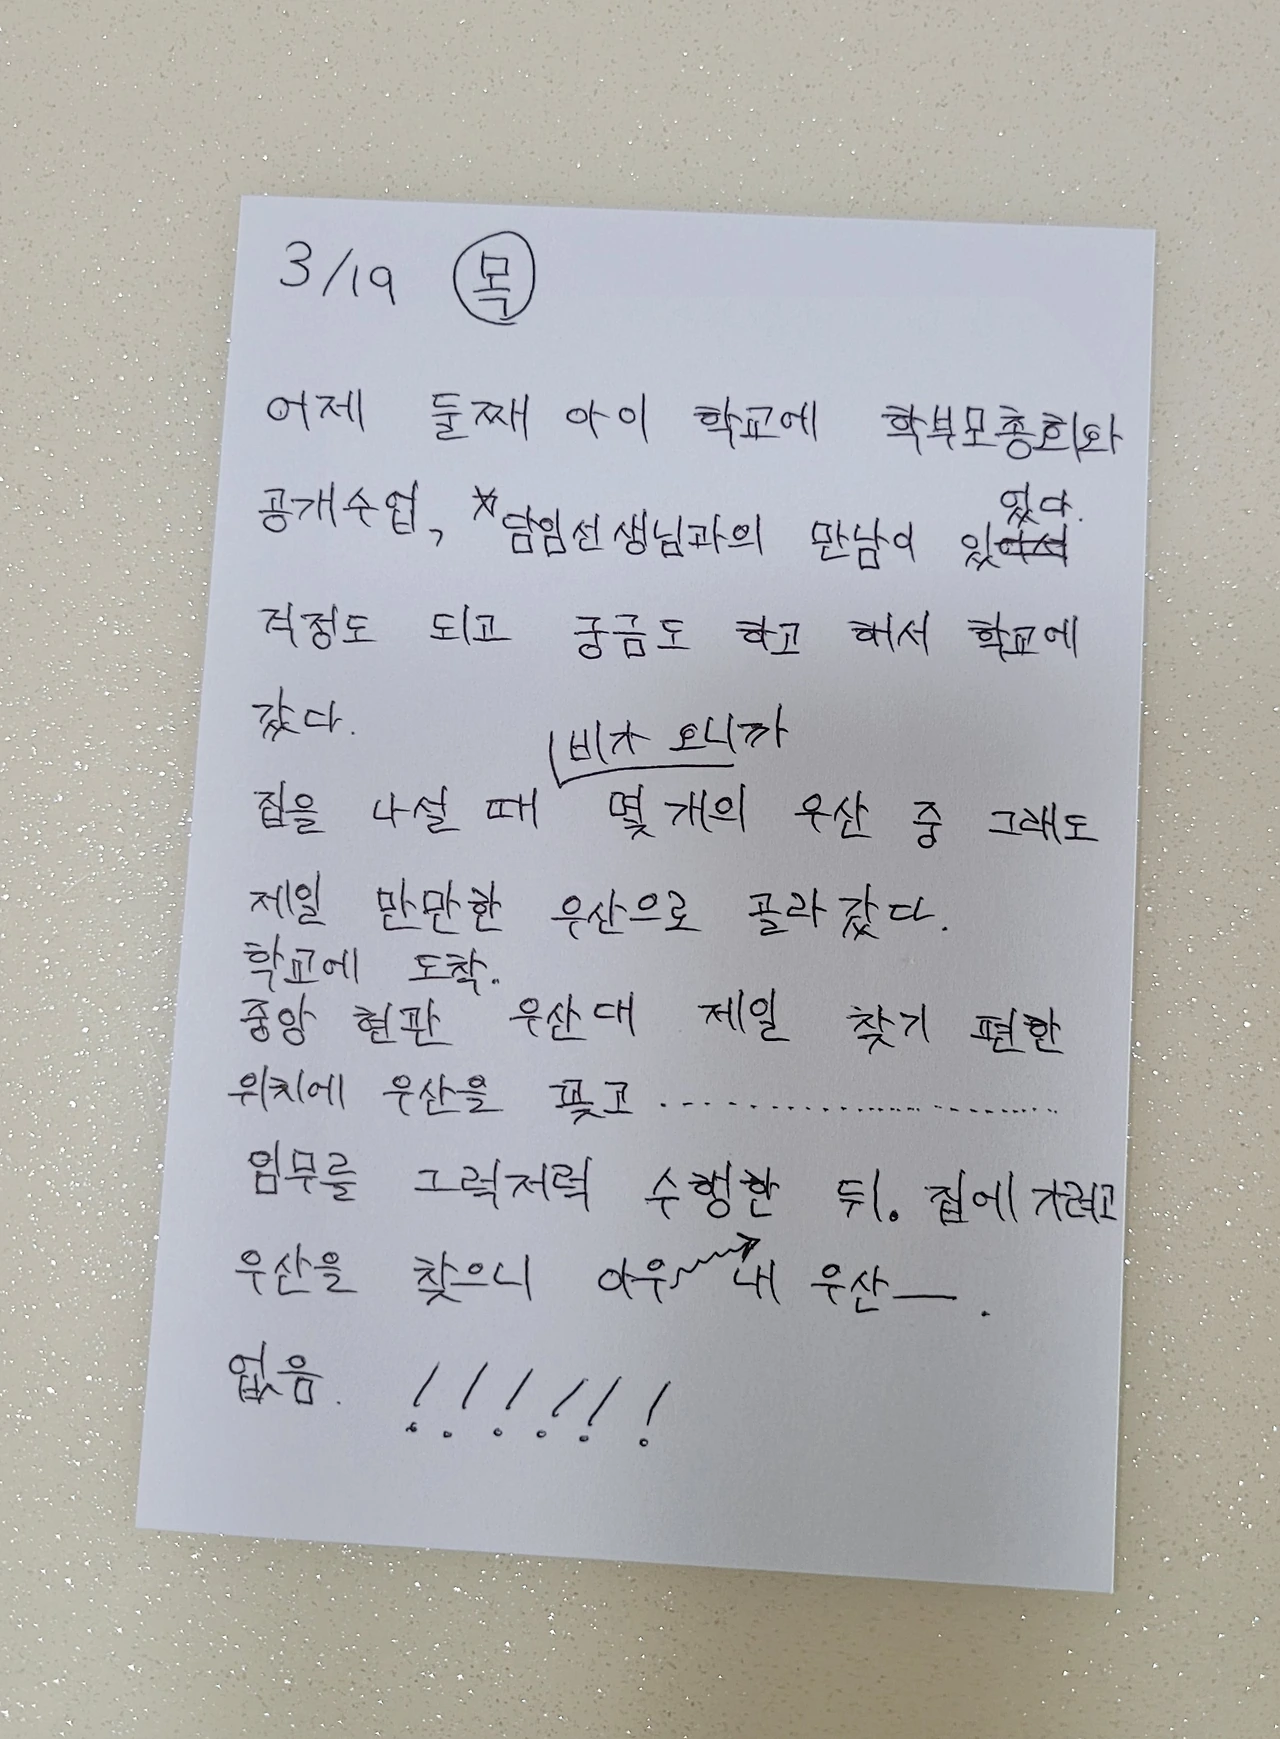 3/19 목
어제 둘째 아이 학교에 학부모총회와
공개수업, *담임선생님과의 만남이 있어서 있다.
걱정도 되고 궁금도 하고 해서 학교에
갔다.
비가 오니까
집을 나설 때 몇개의 우산 중 그래도
제일 만만한 우산으로 골라갔다.
학교에 도착.
중앙 현관 우산대 제일 찾기 편한
위치에 우산을 꽂고 ........................
임무를 그럭저럭 수행한 뒤. 집에 가려고
우산을 찾으니 아우~~→ 내 우산―.
없음. !!!!!!